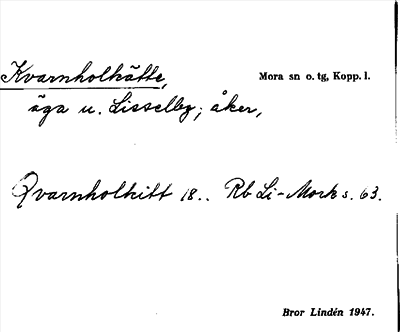 Kvarnholkätte, Mora sn o. tg, Kopp. l.
äga u. Lisselby; åker,
Qvarnholkitt 18.. Rb Li-Mork s. 63.
Bror Lindén 1947.